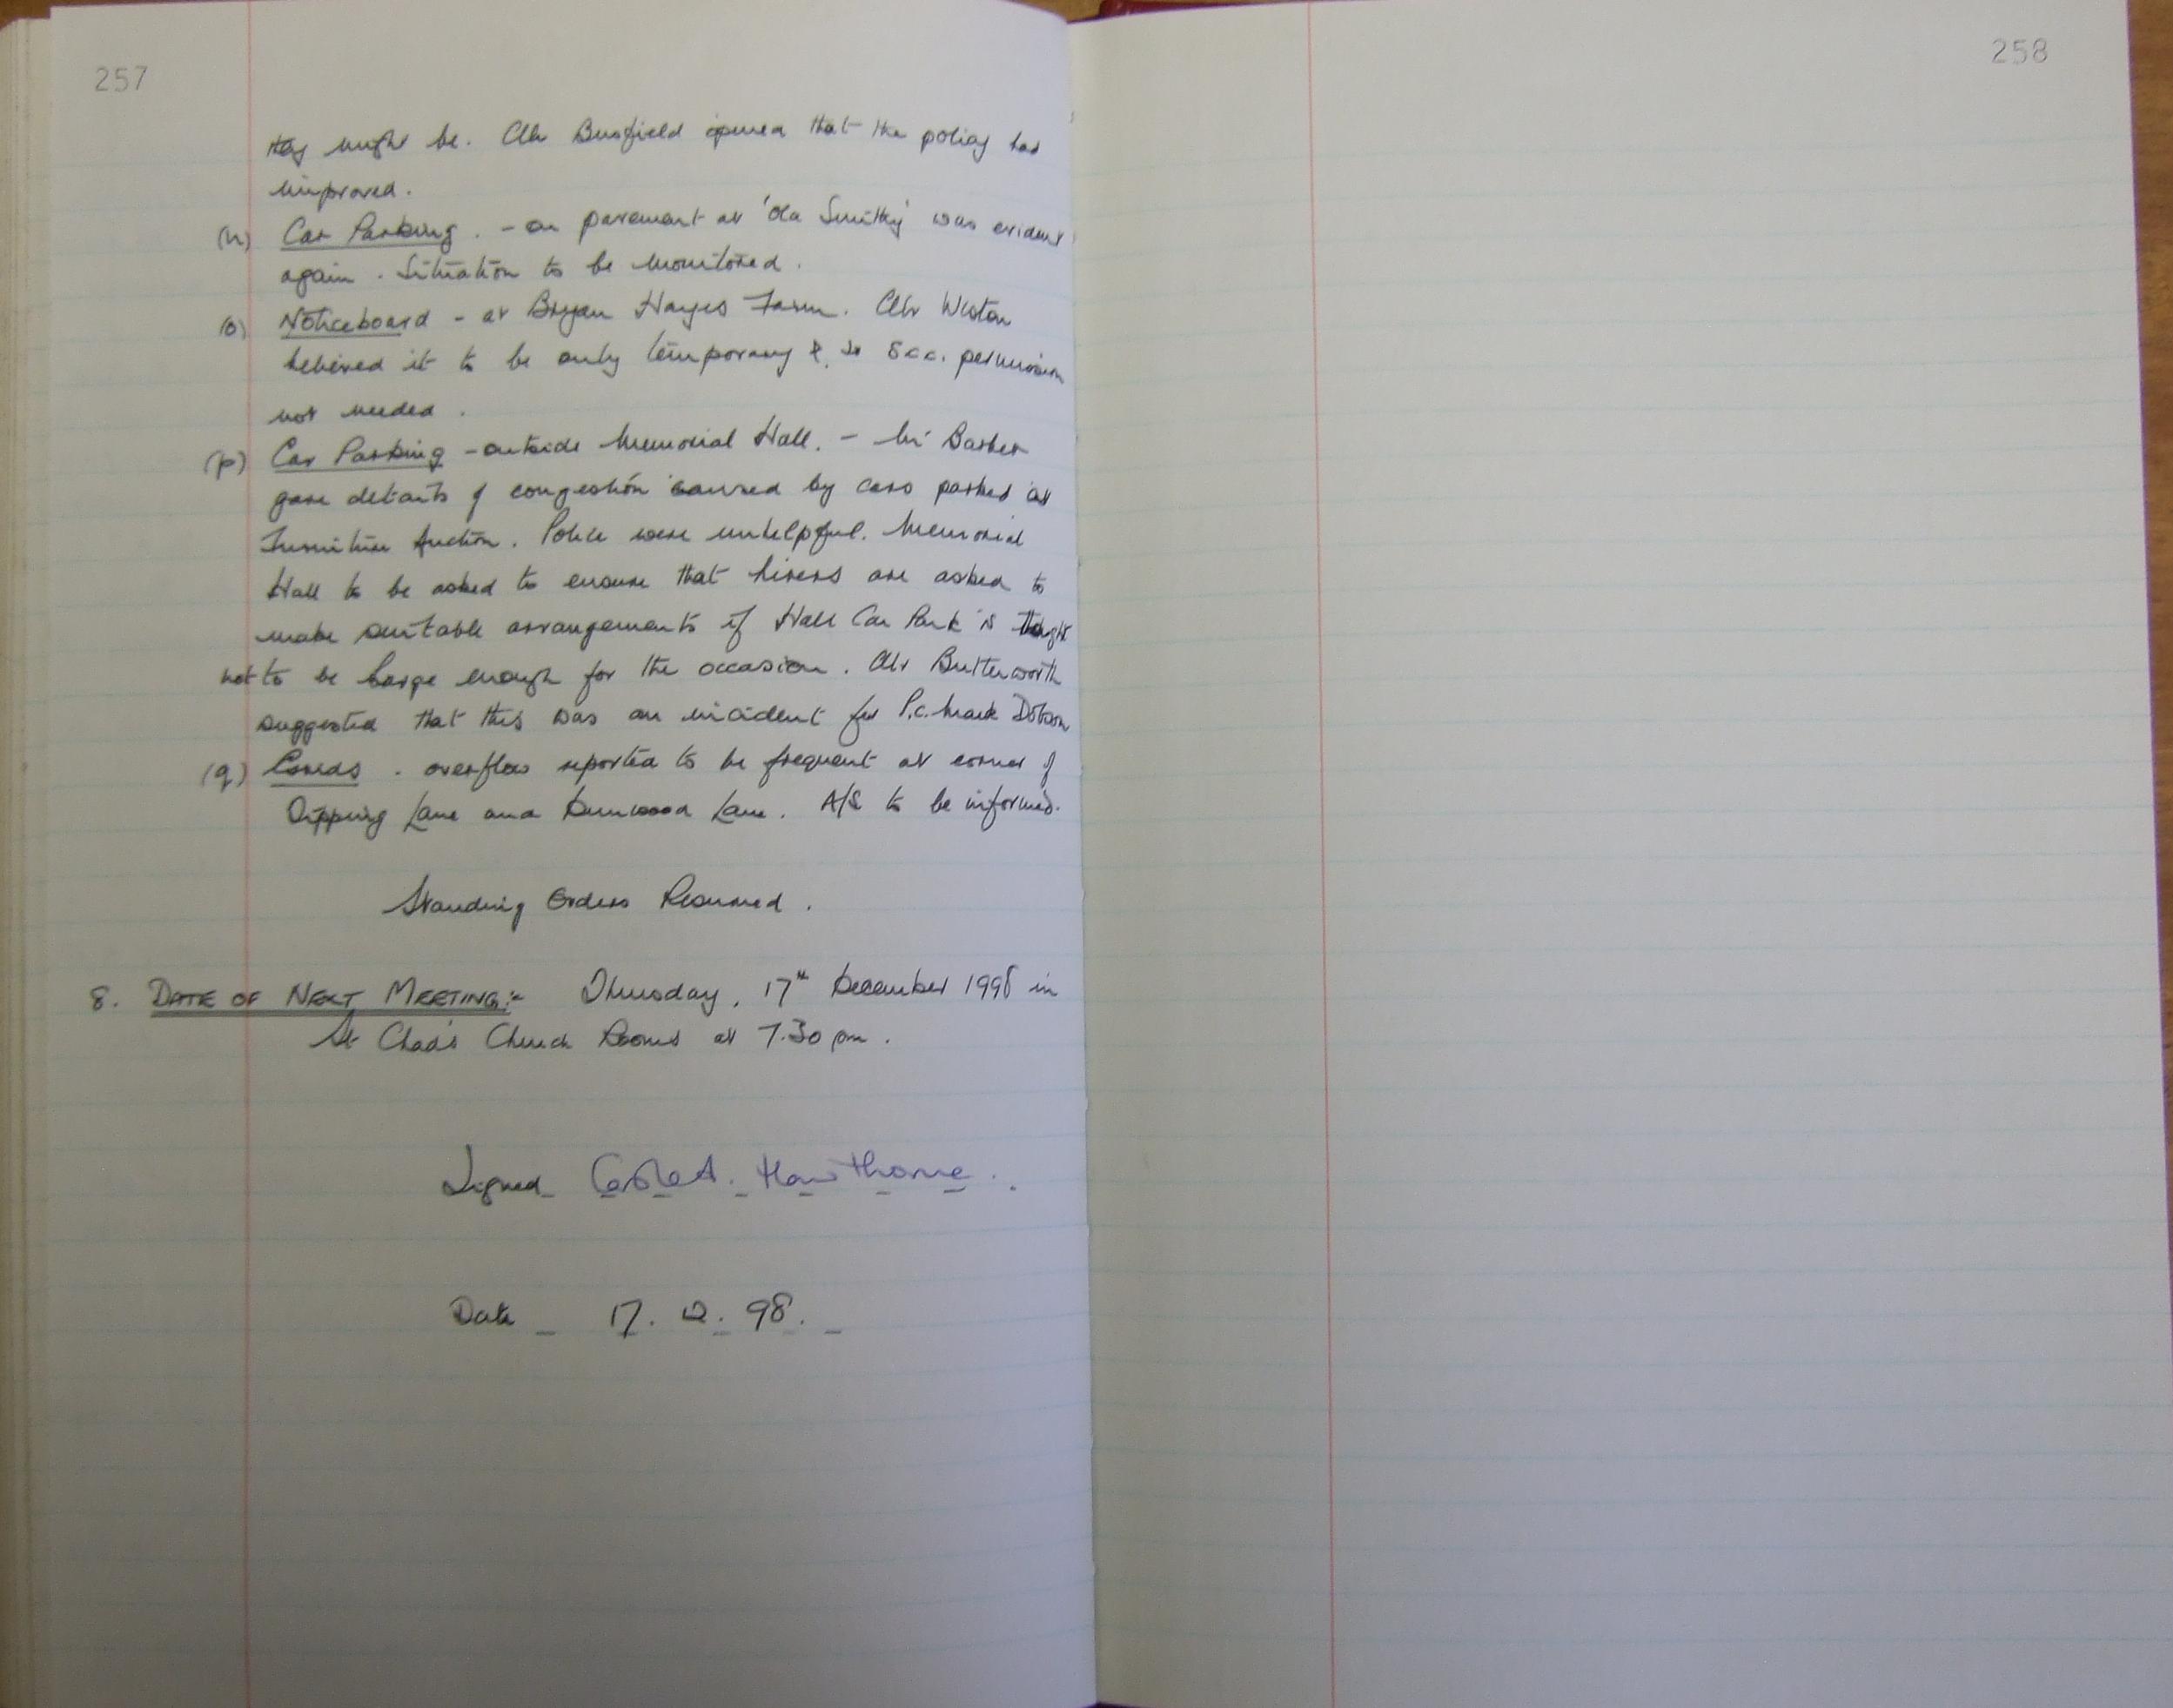 257
they might be. Cllr Busfield opined that the policy had
improved.
(n) Car Parking. - on pavement at 'Old Smithy' was evident
again. Situation to be monitored.
(o) Noticeboard - at Bryan Hayes Farm. Cllr Weston
believed it to be only temporary & so S.c.c. permission
not needed.
(p) Car Parking - outside Memorial Hall. - Mr Barber
gave details of congestion caused by cars parked at
Furniture Auction. Police were unhelpful. Memorial
Hall to be asked to ensure that hirers are asked to
make suitable arrangements if Hall Car Park is thought
not to be large enough for the occasion. Cllr Butterworth
suggested that this was an incident for P.c. Mark Dobson
(q) overflow reported to be frequent at corner of
Dipping Lane and Dunwood Lane. A/S to be informed.
Standing Orders Resumed.
8. DATE OF NEXT MEETING:- Thursday, 17th December 1998 in
St Chad's Church Rooms at 7.30 pm.
Signed Hawthorne.
Date 17. 12. 98.
258